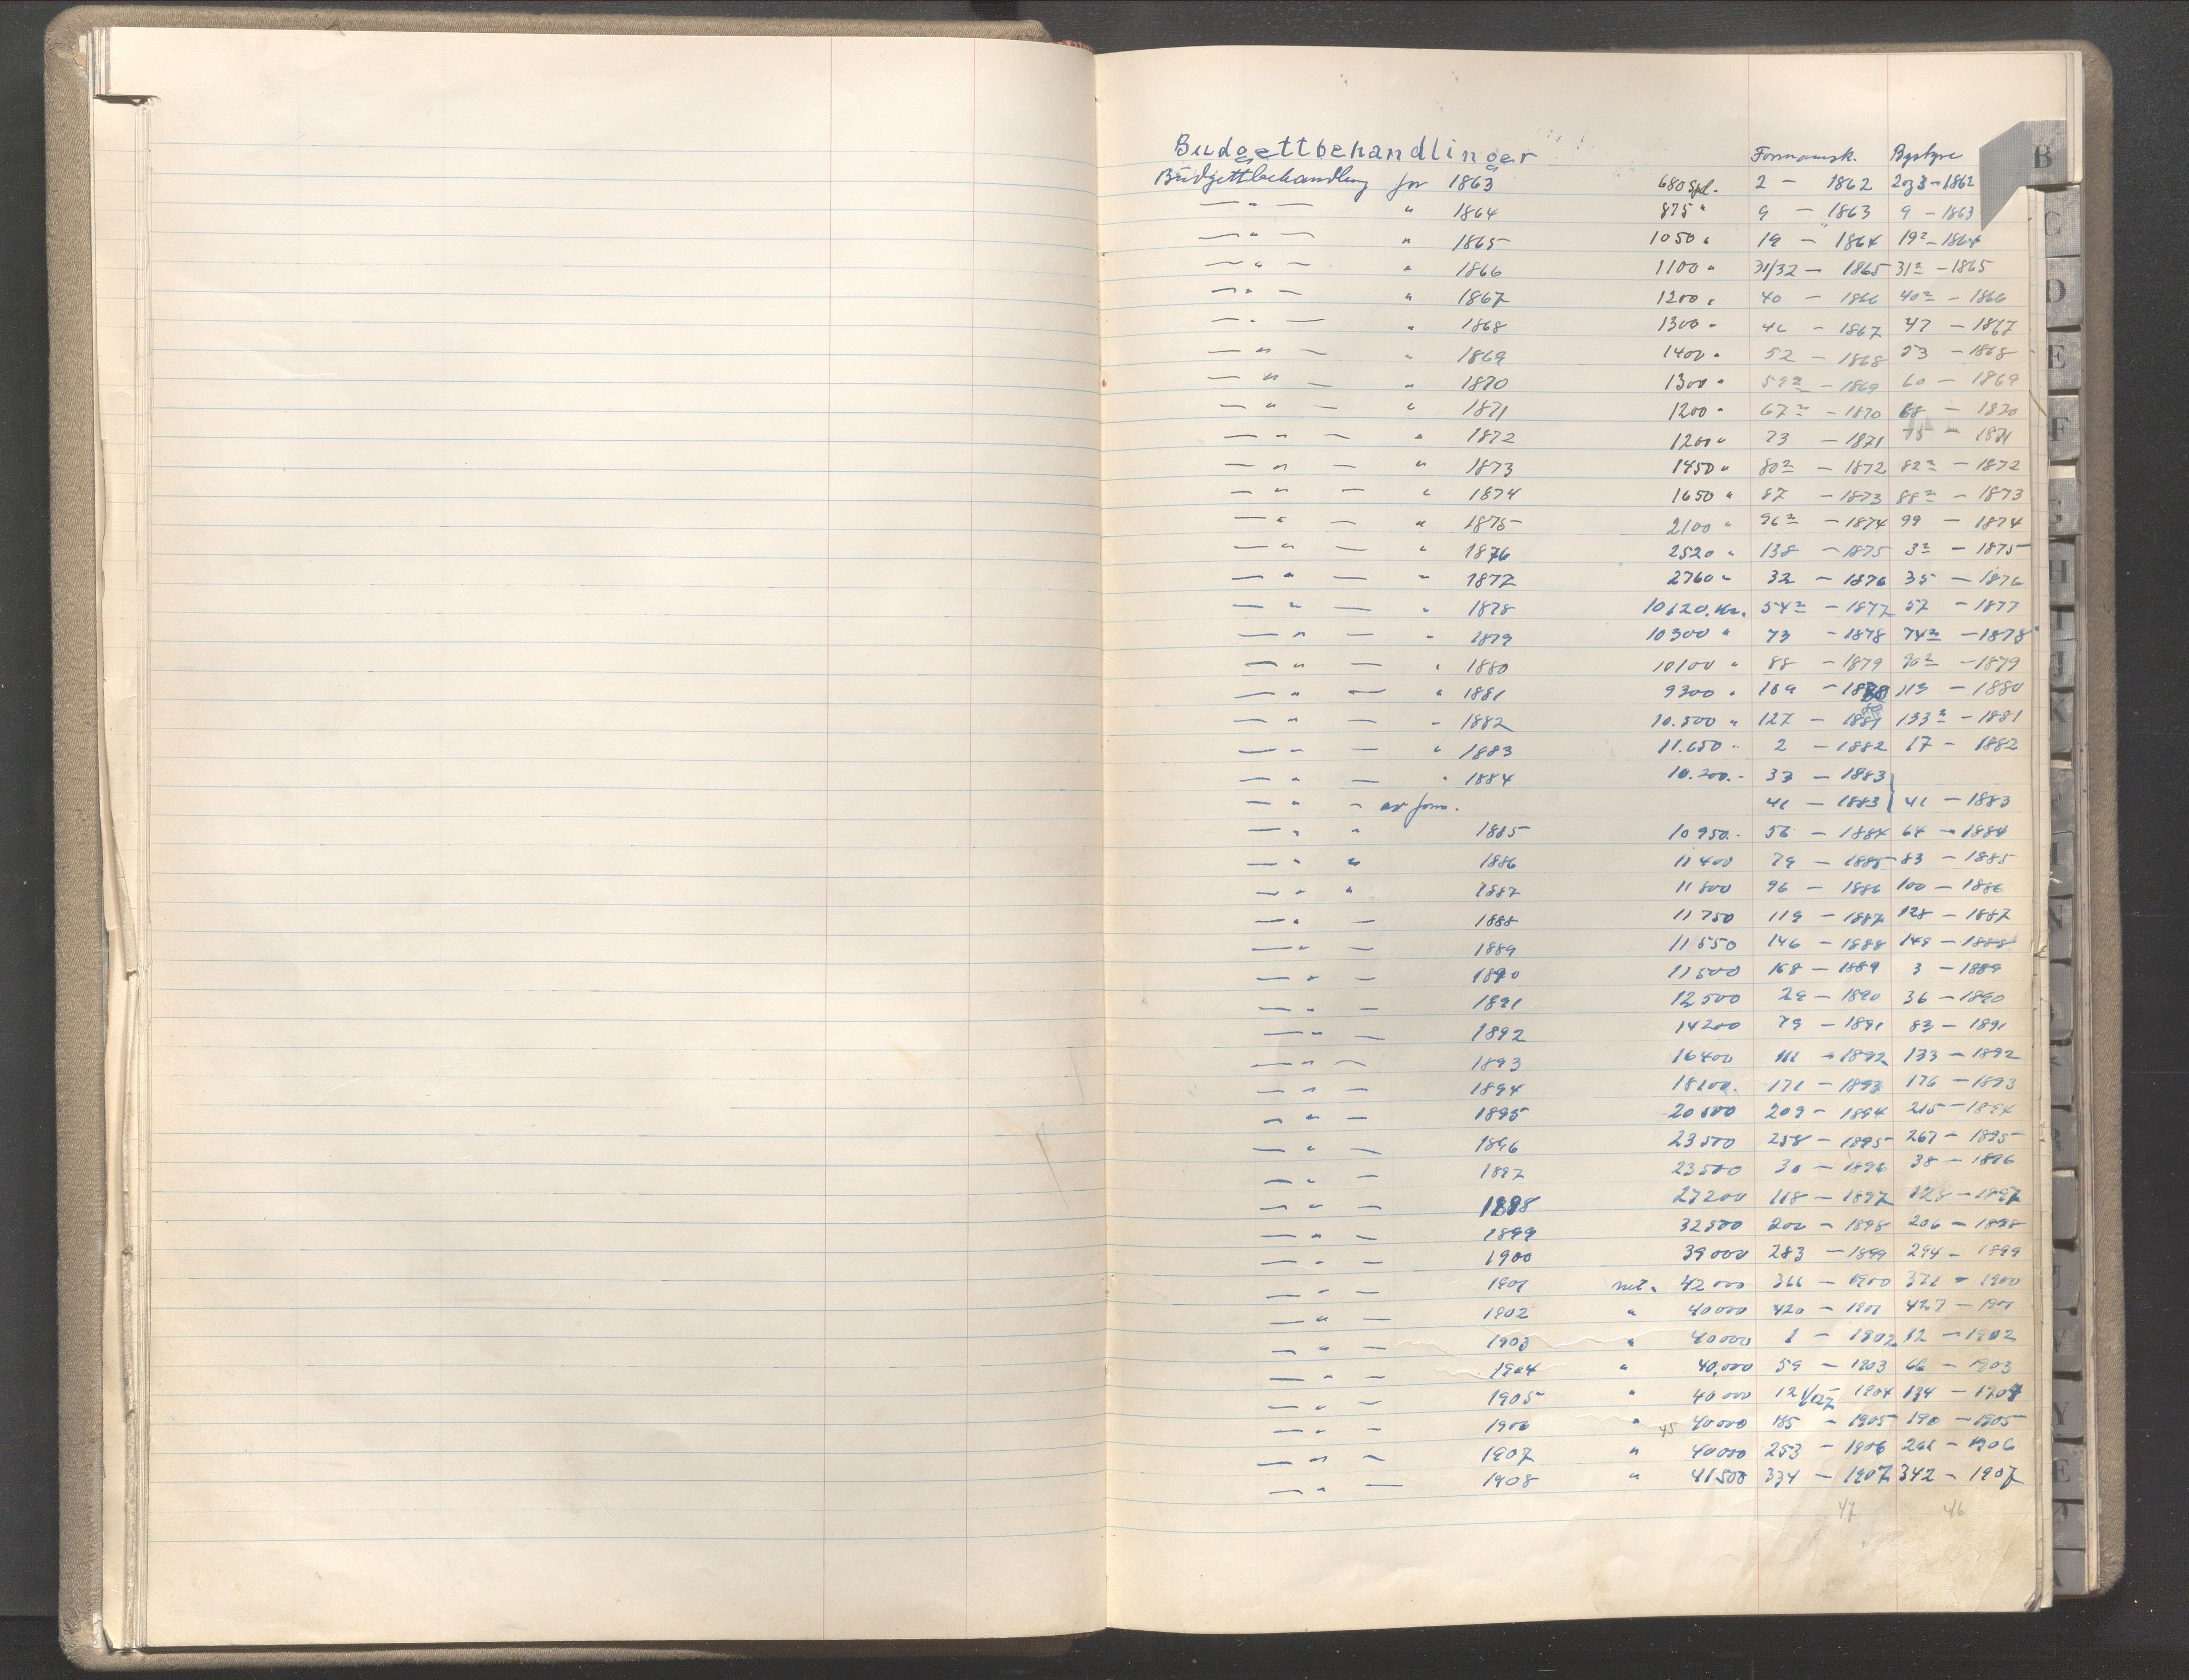 Budgettbehandlinger Formannsk. Bystyre
Budgettbehandling for 1863 680 Spd. 2 - 1862 2 og 3 - 1862
— " — " 1864 875 " 9 - 1863 9 - 1863
— " — " 1865 1050 " 19 - 1864 19² - 1864
— " — " 1866 1100 " 31/32 - 1865 31² - 1865
— " — " 1867 1200 " 40 - 1866 40² - 1866
— " — " 1868 1300 " 46 - 1867 47 - 1867
— " — " 1869 1400 " 52 - 1868 53 - 1868
— " — " 1870 1300 " 59² - 1869 60 - 1869
— " — " 1871 1200 " 67² - 1870 68 - 1870
— " — " 1872 1200 " 73 - 1871 75 - 1871
— " — " 1873 1450 " 80² - 1872 82² - 1872
— " — " 1874 1650 " 87 - 1873 88² - 1873
— " — " 1875 2100 " 96² - 1874 99 - 1874
— " — " 1876 2520 " 138 - 1875 3² - 1875
— " — " 1877 2760 " 32 - 1876 35 - 1876
— " — " 1878 10620. Kr. 54² - 1877 57 - 1877
— " — " 1879 10300 " 73 - 1878 74² - 1878
— " — " 1880 10100 " 88 - 1879 90² - 1879
— " — " 1881 9300 " 109 - 1880 113 - 1880
— " — " 1882 10.500 " 127 - 1881 133² - 1881
— " — " 1883 11.650 " 2 - 1882 17 - 1882
— " — " 1884 10.200.- 33 - 1883
— " — av form. 41 - 1883 41 - 1883
— " " 1885 10950.- 56 - 1884 64 - 1884
— " " 1886 11400 79 - 1885 83 - 1885
— " " 1887 11800 96 - 1886 100 - 1886
— " — 1888 11750 119 - 1887 128 - 1887
— " — 1889 11550 146 - 1888 148 - 1888
— " — 1890 11500 168 - 1889 3 - 1889
— " — 1891 12500 29 - 1890 36 - 1890
— " — 1892 14200 79 - 1891 83 - 1891
— " — 1893 16400 111 - 1892 133 - 1892
— " — 1894 18100. 171 - 1893 176 - 1893
— " — 1895 20500 209 - 1894 215 - 1894
— " — 1896 23500 258 - 1895 267 - 1895
— " — 1897 23500 30 - 1896 38 - 1896
— " — 1898 27200 118 - 1897 128 - 1897
— " — 1899 32500 200 - 1898 206 - 1898
— " — 1900 39000 283 - 1899 294 - 1899
— " — 1901 net. 42000 366 - 1900 371 - 1900
— " — 1902 " 40000 420 - 1901 427 - 1901
— " — 1903 " 40000 1 - 1902 12 - 1902
— " — 1904 " 40,000 59 - 1903 66 - 1903
— " — 1905 " 40000 121/127 - 1904 134 - 1904
— " — 1906 " 45 40000 185 - 1905 190 - 1905
— " — 1907 " 40000 253 - 1906 261 - 1906
— " — 1908 " 41500 334 - 1907 342 - 1907
47 46
B
C
D
E
F
H
I
J
K
N
Y